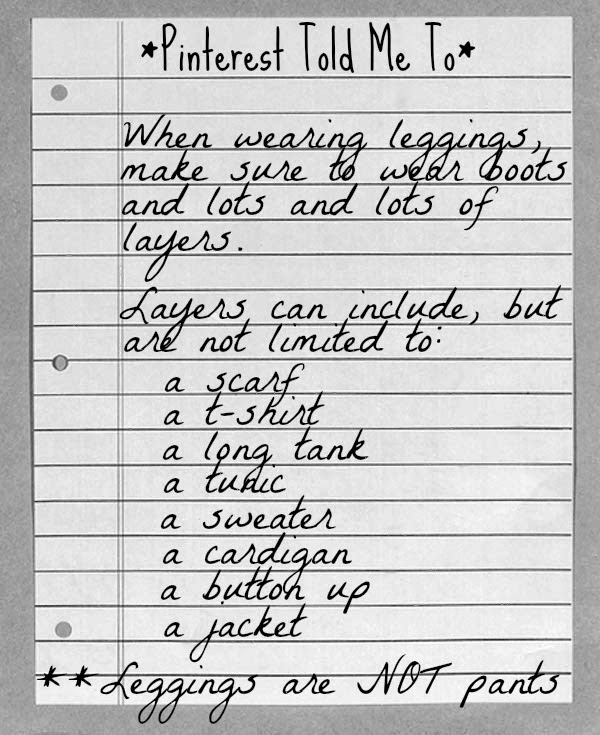 *Pinterest Told Me To*
When wearing leggings,
make sure to wear boots
and lots and lots of
layers.
Layers can include, but
are not limited to:
a scarf
a t-shirt
a long tank
a tunic
a sweater
a cardigan
a button up
a jacket
**Leggings are NOT pants